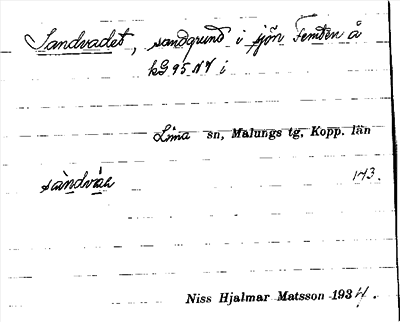 Sandvadet, sandgrund i sjön Femten å
kG 95 NV i
Lima sn, Malungs tg, Kopp. län
143.
Niss Hjalmar Matsson 1934.